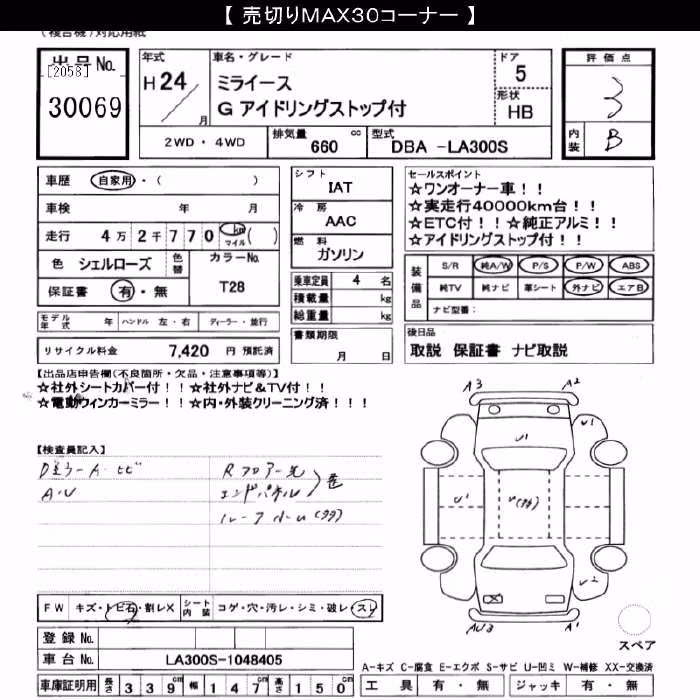 【 売切りMAX30コーナー 】
(複合機)対応用紙
出品No. [2058] 30069
年式 H24/ 月
車名・グレード
ミライース
G アイドリングストップ付
ドア 5
形状 HB
評価点 3
内装 B
2WD・4WD
排気量 660 cc
型式 DBA -LA300S
車歴 自家用・( )
車検 年 月
走行 4万2千770 km マイル ( )
色 シェルローズ 色替 カラーNo. T28
保証書 有・無
モデル年式 年 ハンドル 左・右 ディーラー・並行
リサイクル料金 7,420 円 預託済
シフト IAT
冷房 AAC
燃料 ガソリン
乗車定員 4 名
積載量 kg
総重量 kg
書類期限 月 日
セールスポイント
☆ワンオーナー車！！
☆実走行40000km台！！
☆ETC付！！☆純正アルミ！！
☆アイドリングストップ付！！
装備品 S/R 純A/W P/S P/W ABS
純TV 純ナビ 革シート 外ナビ エアB
ナビ型番：
後日品
取説 保証書 ナビ取説
【出品店申告欄(不良箇所・欠品・注意事項等)】
☆社外シートカバー付！！☆社外ナビ&TV付！！
☆電動ウィンカーミラー！！☆内・外装クリーニング済！！
【検査員記入】
A・U
Rフロアー
エンドパネル
A3 A2
U1 U1
U1
U2
AU3 A1
FW キズ・トビ石・割レX シート内装 コゲ・穴・汚レ・シミ・破レ・スレ
登録No.
車台No. LA300S-1048405
車庫証明用 長さ 339cm 幅 147cm 高さ 150cm
スペア
A-キズ C-腐食 E-エクボ S-サビ U-凹ミ W-補修 XX-交換済
工具 有・無 ジャッキ 有・無